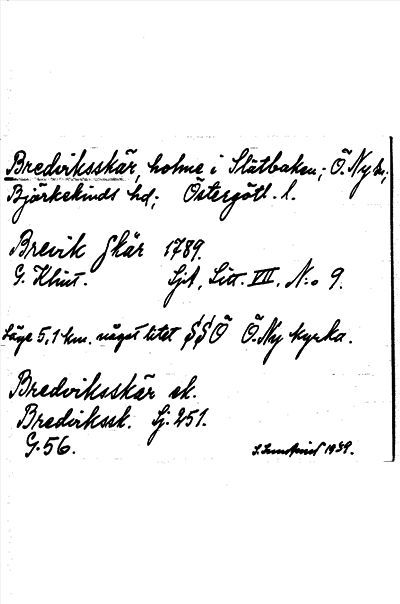 Bredviksskär, holme i Slätbaken; Ö. Ny sn;
Björkekinds hd; Östergötl. l.
Brevik Skär 1789.
G. Klint. Sjöt, Litt. VII. N:o 9.
Läge 5,1 km. något litet SSÖ Ö. Ny kyrka.
Bredviksskär ek.
Bredvikssk. Sj. 251.
G. 56.
1939.